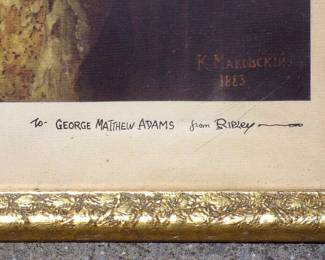 К. Маковскій
1883
To- GEORGE MATTHEW ADAMS from RIPLEY